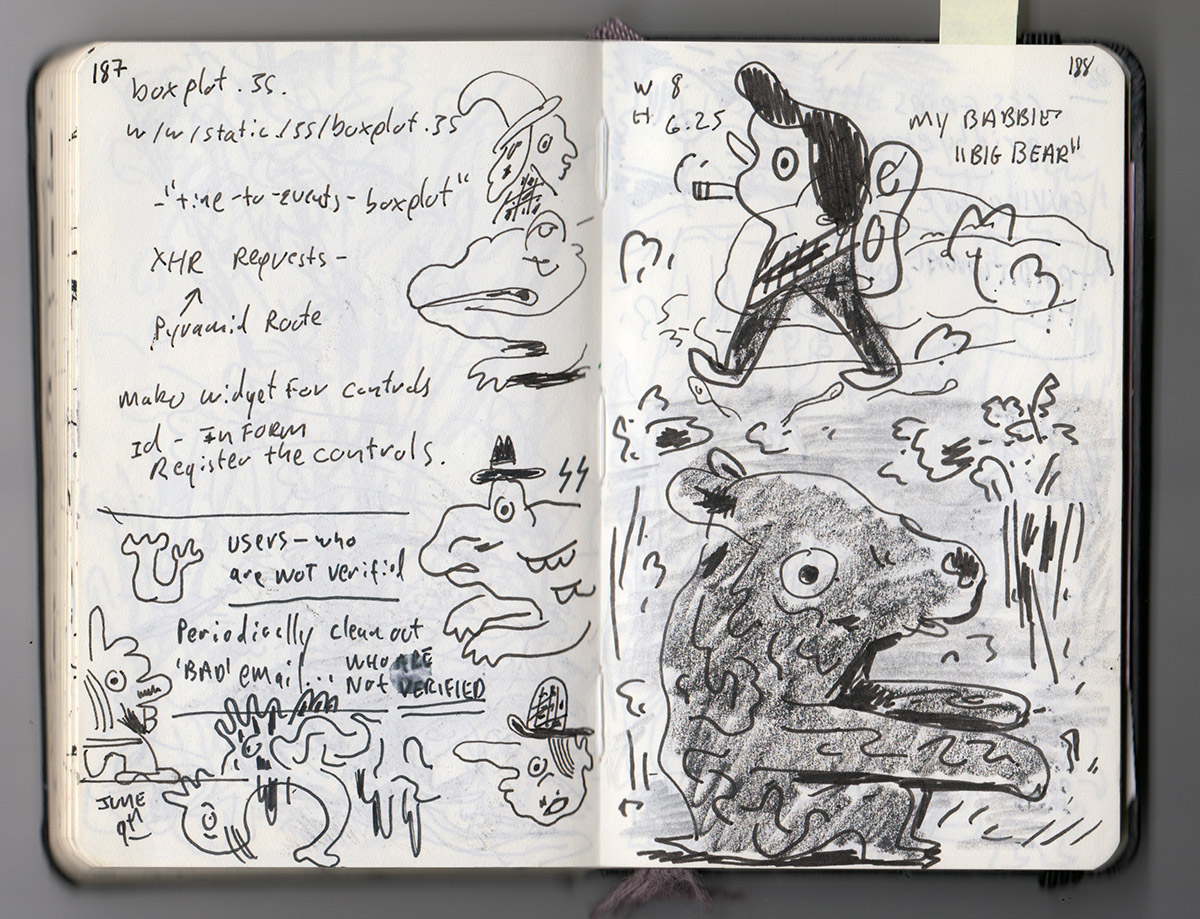 187
boxplot.js.
w/w/static/js/boxplot.js
-"time-to-events-boxplot"
XHR Requests-
Pyramid Route
Make widget for controls
Id - In Form
Register the controls.
users-who
are not verified
Periodically clean out
'BAD' email... WHO ARE
Not VERIFIED
JUNE
9th
188
W 8
H 6.25
MY BABBIE?
"BIG BEAR"